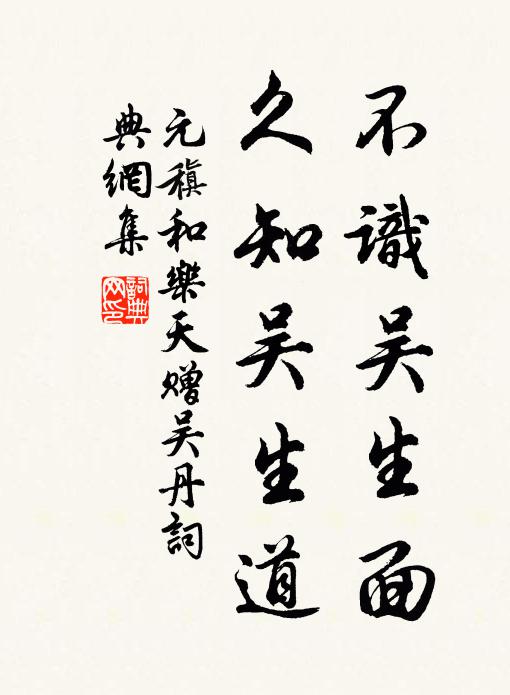 不識吴生面
久知吴生道
元稹和樂天贈吴丹詞
典網集
詞典
网印